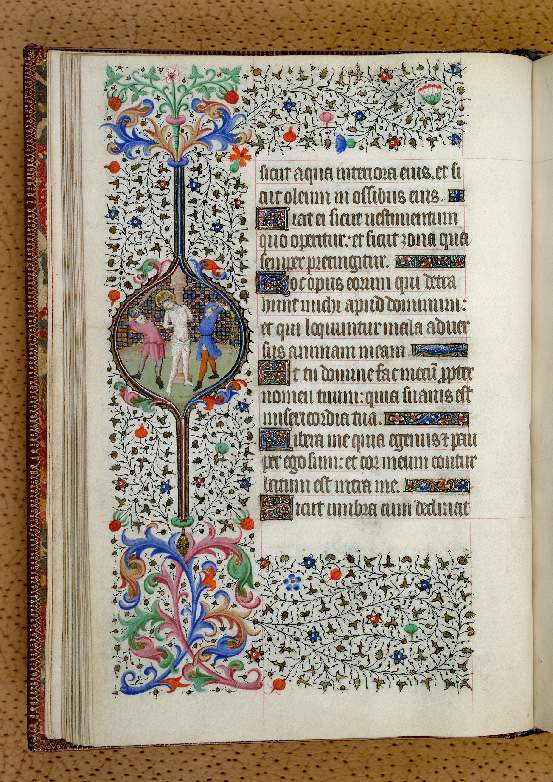 sicut aqua interiora eius. et si
cut oleum in ossibus eius.
Fiat ei sicut uestimentum
quo operitur: et sicut zona qua
semper precingitur.
Hoc opus eorum qui detra
hunt michi apud dominum:
et qui loquuntur mala aduer
sus animam meam.
Et tu domine fac mecum propter
nomen tuum: quia suauis est
misericordia tua.
Libera me quia egenus et pau
per ego sum: et cor meum contur
batum est intra me.
Sicut umbra cum declinat